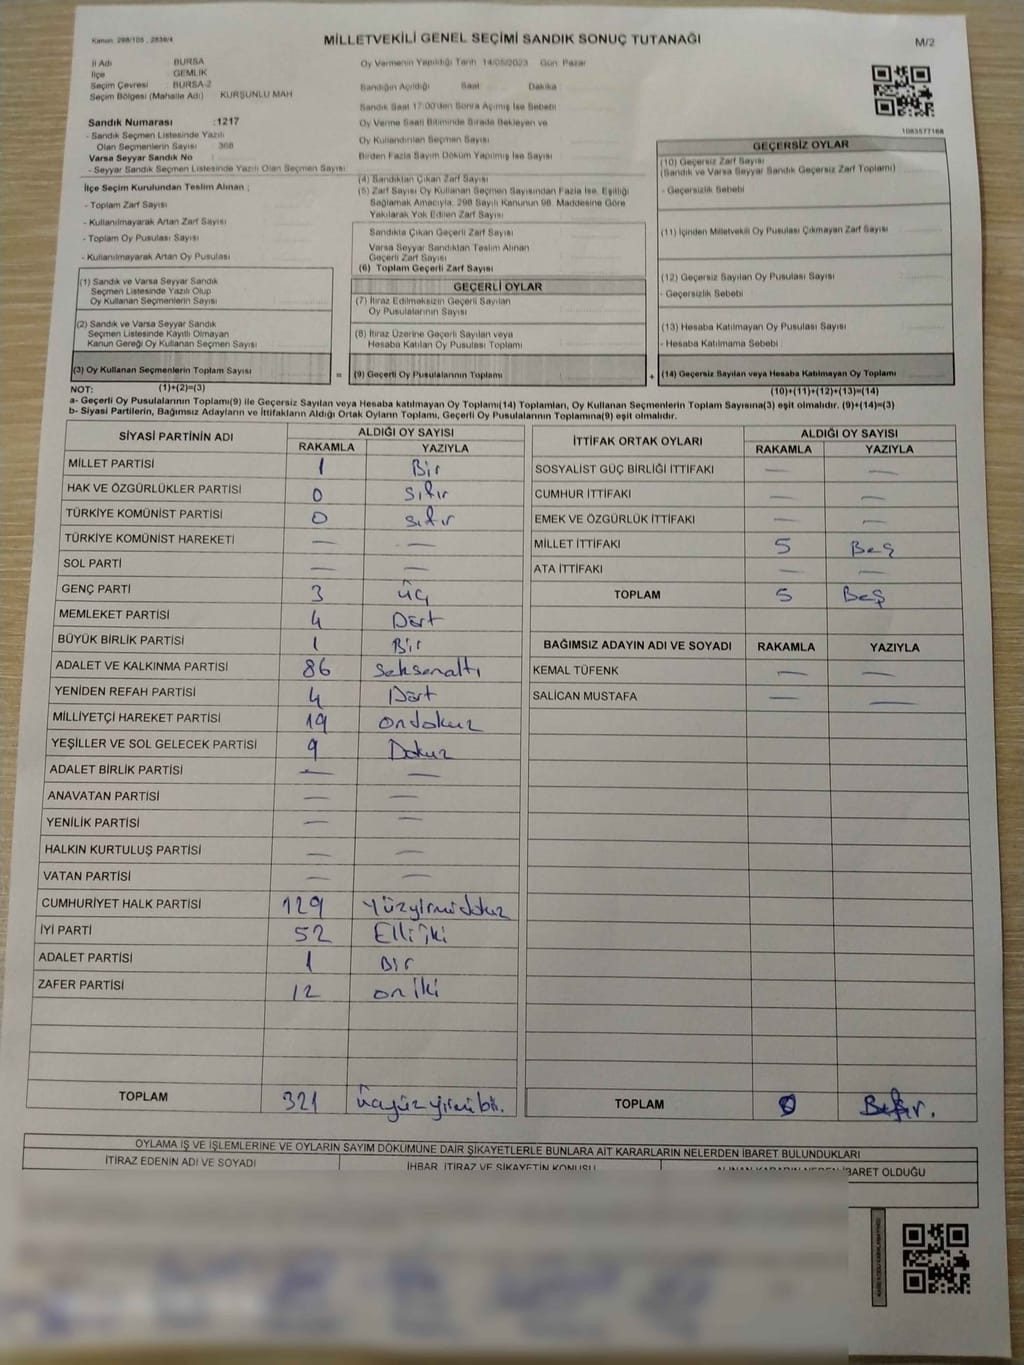 Kanun: 298/105 , 2839/4
MİLLETVEKİLİ GENEL SEÇİMİ SANDIK SONUÇ TUTANAĞI
M/2
İl Adı BURSA
İlçe GEMLİK
Seçim Çevresi BURSA-2
Seçim Bölgesi (Mahalle Adı) KURŞUNLU MAH
Sandık Numarası :1217
- Sandık Seçmen Listesinde Yazılı
Olan Seçmenlerin Sayısı 368
Varsa Seyyar Sandık No
- Seyyar Sandık Seçmen Listesinde Yazılı Olan Seçmen Sayısı
İlçe Seçim Kurulundan Teslim Alınan ;
- Toplam Zarf Sayısı
- Kullanılmayarak Artan Zarf Sayısı
- Toplam Oy Pusulası Sayısı
- Kullanılmayarak Artan Oy Pusulası
(1) Sandık ve Varsa Seyyar Sandık
Seçmen Listesinde Yazılı Olup
Oy Kullanan Seçmenlerin Sayısı
(2) Sandık ve Varsa Seyyar Sandık
Seçmen Listesinde Kayıtlı Olmayan
Kanun Gereği Oy Kullanan Seçmen Sayısı
(3) Oy Kullanan Seçmenlerin Toplam Sayısı
Oy Vermenin Yapıldığı Tarih 14/05/2023 Gün Pazar
Sandığın Açıldığı Saat Dakika
Sandık Saat 17:00'den Sonra Açılmış İse Sebebi
Oy Verme Saati Bitiminde Sırada Bekleyen ve
Oy Kullandırılan Seçmen Sayısı
Birden Fazla Sayım Döküm Yapılmış İse Sayısı
(4) Sandıktan Çıkan Zarf Sayısı
(5) Zarf Sayısı Oy Kullanan Seçmen Sayısından Fazla İse, Eşitliği
Sağlamak Amacıyla, 298 Sayılı Kanunun 98. Maddesine Göre
Yakılarak Yok Edilen Zarf Sayısı
Sandıkta Çıkan Geçerli Zarf Sayısı
Varsa Seyyar Sandıktan Teslim Alınan
Geçerli Zarf Sayısı
(6) Toplam Geçerli Zarf Sayısı
GEÇERLİ OYLAR
(7) İtiraz Edilmeksizin Geçerli Sayılan
Oy Pusulalarının Sayısı
(8) İtiraz Üzerine Geçerli Sayılan veya
Hesaba Katılan Oy Pusulası Toplamı
= (9) Geçerli Oy Pusulalarının Toplamı
1083577168
GEÇERSİZ OYLAR
(10) Geçersiz Zarf Sayısı
(Sandık ve Varsa Seyyar Sandık Geçersiz Zarf Toplamı)
- Geçersizlik Sebebi
(11) İçinden Milletvekili Oy Pusulası Çıkmayan Zarf Sayısı
(12) Geçersiz Sayılan Oy Pusulası Sayısı
- Geçersizlik Sebebi
(13) Hesaba Katılmayan Oy Pusulası Sayısı
- Hesaba Katılmama Sebebi
+ (14) Geçersiz Sayılan veya Hesaba Katılmayan Oy Toplamı
NOT: (1)+(2)=(3) (10)+(11)+(12)+(13)=(14)
a- Geçerli Oy Pusulalarının Toplamı(9) ile Geçersiz Sayılan veya Hesaba katılmayan Oy Toplamı(14) Toplamları, Oy Kullanan Seçmenlerin Toplam Sayısına(3) eşit olmalıdır. (9)+(14)=(3)
b- Siyasi Partilerin, Bağımsız Adayların ve İttifakların Aldığı Ortak Oyların Toplamı, Geçerli Oy Pusulalarının Toplamına(9) eşit olmalıdır.
SİYASİ PARTİNİN ADI ALDIĞI OY SAYISI
RAKAMLA YAZIYLA
MİLLET PARTİSİ 1 Bir
HAK VE ÖZGÜRLÜKLER PARTİSİ 0 sıfır
TÜRKİYE KOMÜNİST PARTİSİ 0 sıfır
TÜRKİYE KOMÜNİST HAREKETİ — —
SOL PARTİ — —
GENÇ PARTİ 3 üç
MEMLEKET PARTİSİ 4 Dört
BÜYÜK BİRLİK PARTİSİ 1 Bir
ADALET VE KALKINMA PARTİSİ 86 Seksenaltı
YENİDEN REFAH PARTİSİ 4 Dört
MİLLİYETÇİ HAREKET PARTİSİ 19 ondokuz
YEŞİLLER VE SOL GELECEK PARTİSİ 9 Dokuz
ADALET BİRLİK PARTİSİ — —
ANAVATAN PARTİSİ — —
YENİLİK PARTİSİ — —
HALKIN KURTULUŞ PARTİSİ — —
VATAN PARTİSİ — —
CUMHURİYET HALK PARTİSİ 129 Yüzyirmidokuz
İYİ PARTİ 52 Elliiki
ADALET PARTİSİ 1 Bir
ZAFER PARTİSİ 12 oniki
TOPLAM 321 üçyüzyirmibir.
İTTİFAK ORTAK OYLARI ALDIĞI OY SAYISI
RAKAMLA YAZIYLA
SOSYALİST GÜÇ BİRLİĞİ İTTİFAKI — —
CUMHUR İTTİFAKI — —
EMEK VE ÖZGÜRLÜK İTTİFAKI — —
MİLLET İTTİFAKI 5 Beş
ATA İTTİFAKI — —
TOPLAM 5 Beş
BAĞIMSIZ ADAYIN ADI VE SOYADI RAKAMLA YAZIYLA
KEMAL TÜFENK — —
SALİCAN MUSTAFA — —
TOPLAM
OYLAMA İŞ VE İŞLEMLERİNE VE OYLARIN SAYIM DÖKÜMÜNE DAİR ŞİKAYETLERLE BUNLARA AİT KARARLARIN NELERDEN İBARET BULUNDUKLARI
İTİRAZ EDENİN ADI VE SOYADI İHBAR, İTİRAZ VE ŞİKAYETİN KONUSU ALINAN KARARIN NEDEN İBARET OLDUĞU